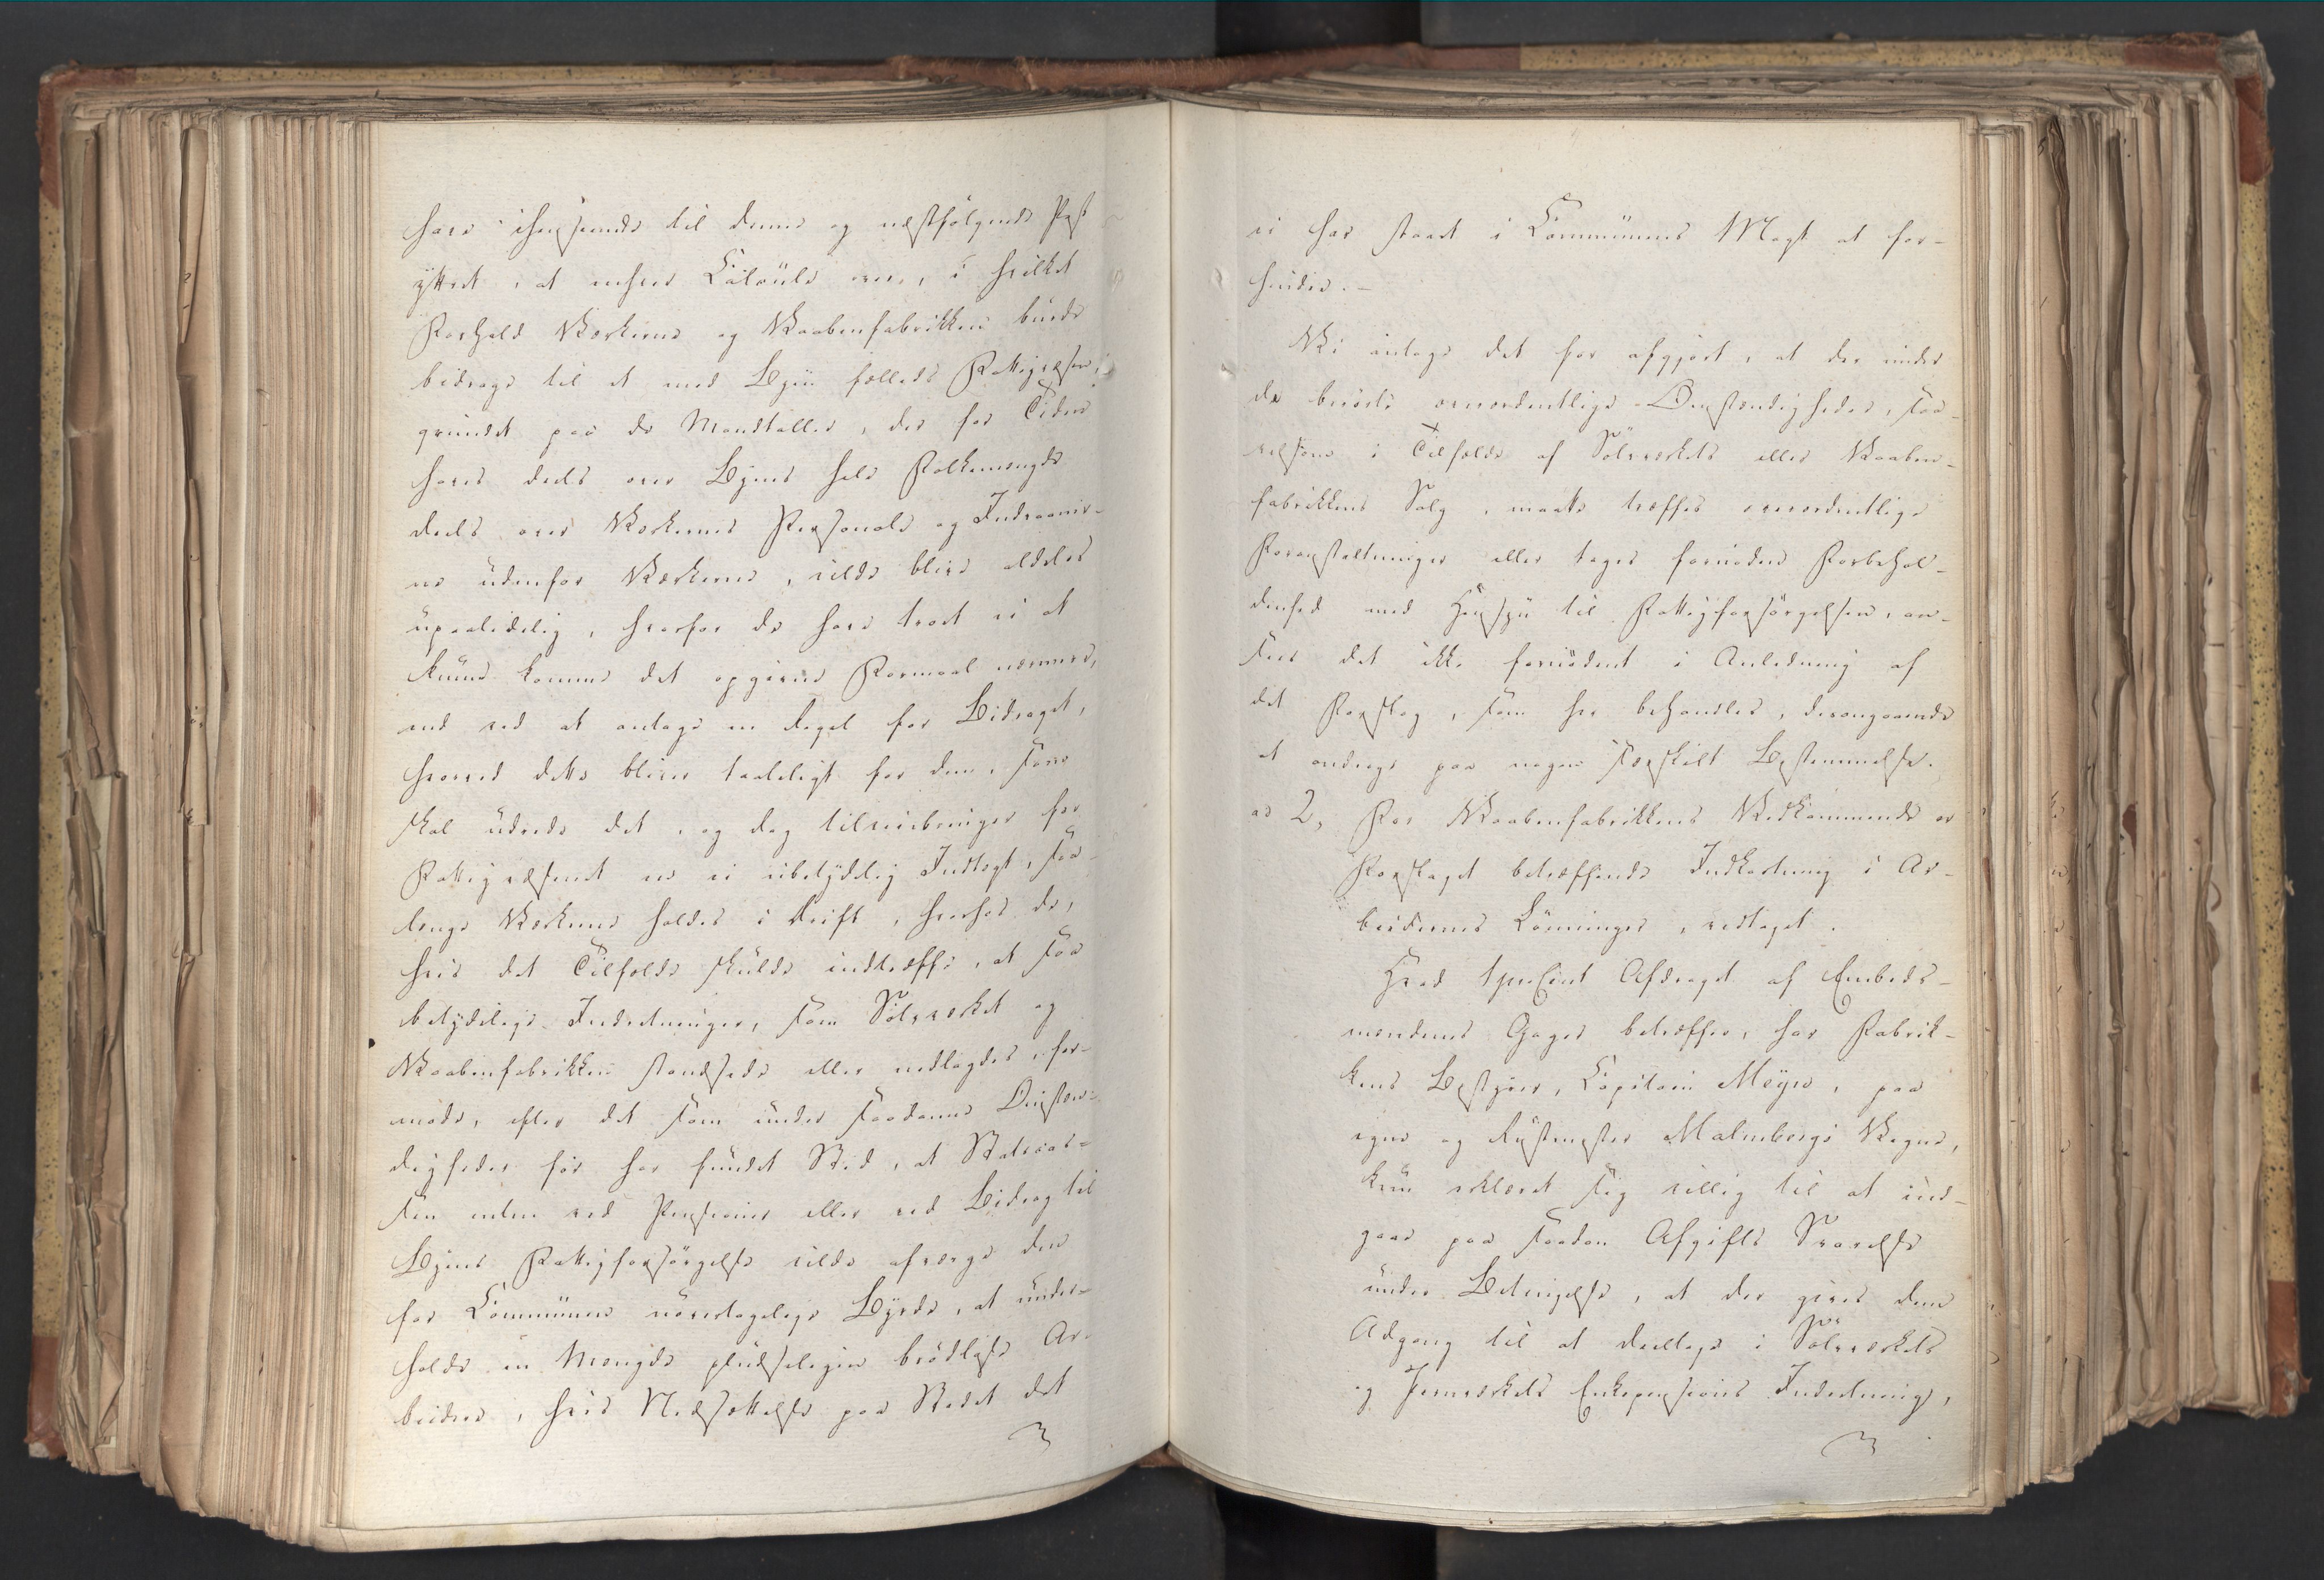 have ihenseende til denne og næstfølgende Post
yttret, at enhver Calcule over, i hvilket
Forhold Værkerne og Vaabenfabrikken burde
bidrage til et med Byen fælleds Fattigvæsen,
grundet paa de Mandtaller, der for Tiden
haves deels over Byens hele Folkemængde
deels over Værkernes Personale og Indvaaner-
ne udenfor Værkerne, vilde blive aldeles
upaalidelig, hvorfor de have troet ei at
kunne komme det opgivne Formaal nærmere,
end ved at antage en Regel for Bidraget,
hvorved dette bliver taaleligt for den, som
skal udrede det, og dog tilveiebringer for
Fattigvæsenet en ei ubetydelig Indtægt, saa-
længe Værkerne holdes i Drift, hvorhos de,
hvis det Tilfælde skulde indtræffe, at saa
betydelige Indretninger, som Sølvværket og
Vaabenfabrikken standsede eller nedlagdes, for-
mode, efter det som under saadanne Omstæn-
digheder før har fundet Sted, at Statscas-
sen enten ved Pensioner eller ved Bidrag til
Byens Fattigforsørgelse vilde afværge den
for Communen uovertagelige Byrde, at under-
holde en Mængde pludseligen brødløse Ar-
beidere, hvis Nedsættelse paa Stedet det
ei har staaet i Communens Magt at for-
hindre. –
Vi antage det for afgjort, at der under
de berørte overordentlige Omstændigheder, saa-
velsom i Tilfælde af Sølvværkets eller Vaaben-
fabrikkens Salg, maatte træffes overordentlige
Foranstaltninger eller tages fornøden Forbehol-
denhed med Hensyn til Fattigforsørgelsen, an-
sees det ikke fornødent i Anledning af
det Forslag, som her behandles, desangaaende
at andrage paa nogen særskilt Bestemmelse.
ad 2, For Vaabenfabrikkens Vedkommende er
Forslaget betræffende Indkortning i Ar-
beidernes Lønninger, vedtaget.
Hvad 1 proCent Afdraget af Embeds-
mændenes Gager betræffer, har Fabrik-
kens Bestyrer, Capitain Meyer, paa
egne og Rustmester Malmbergs Vegne,
kun erklæret sig villig til at ind-
gaae paa saadan Afgifts Svarelse
under Betingelse, at der gives dem
Adgang til at deeltage i Sølvværkets
og Jernværkets Enkepensions Indretning,